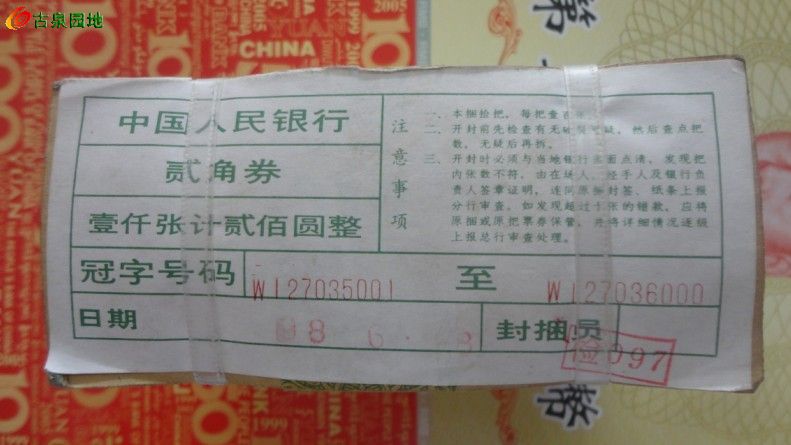 古泉园地
中国人民银行
贰角券
壹仟张计贰佰圆整
注意事项
一、本捆拾把,每把壹百张。
二、开封前先检查有无破损可疑,然后查点把
数,无疑后再拆。
三、开封时必须与当地银行当面点清,发现把
内张数不符,由在场人、经手人及银行负
责人签章证明,连同原捆封签、纸条上报
分行审查。如发现超过十张的错款,应将
原捆或原把票券保管,并将详细情况逐级
上报总行审查处理。
冠字号码
WI27035001
至
WI27036000
日期
封捆员
检097
CHINA
1999
2005
YUAN
第
币